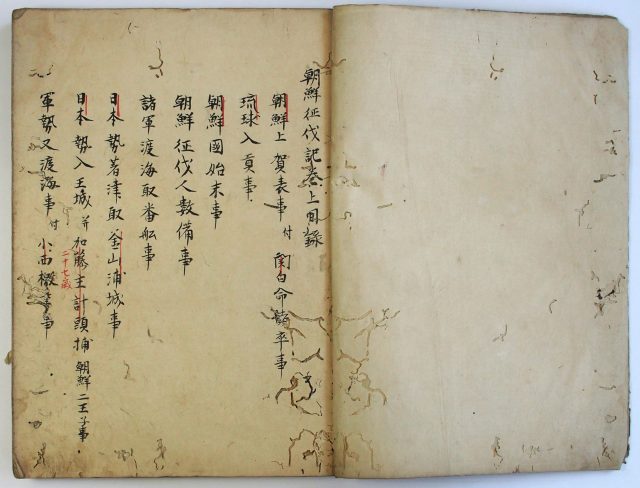 朝鮮征伐記巻上目録
朝鮮上賀表事 付 関白命諸卒事
琉球入貢事
朝鮮國始末事
朝鮮征伐人数備事
諸軍渡海取番舩事
日本勢著津取釜山浦城事
日本勢入王城 并 加藤主計頭捕朝鮮二王子事
二十七歳
軍勢又渡海事 付 小西檄事